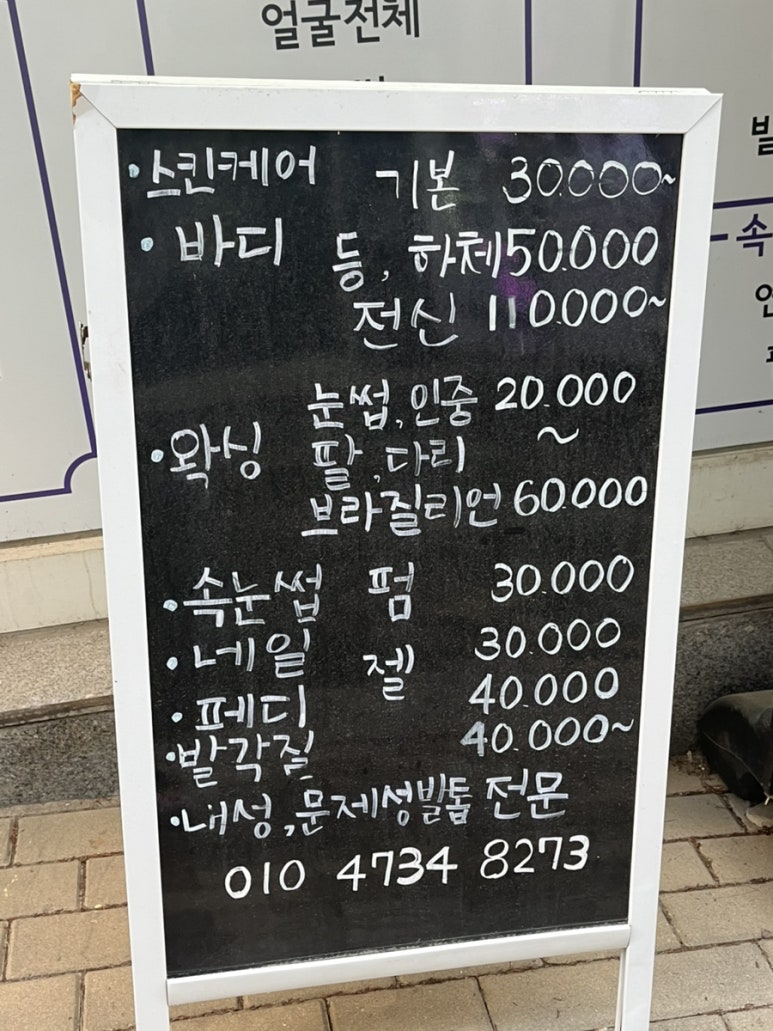 얼굴전체
·스킨케어 기본 30.000~
·바디 등, 하체 50.000
전신 110.000~
눈썹, 인중 20.000
·왁싱 팔, 다리 ~
브라질리언 60.000
·속눈썹 펌 30.000
·네일 젤 30.000
·페디 40.000
·발각질 40.000~
·내성, 문제성발톱 전문
010 4734 8273
속